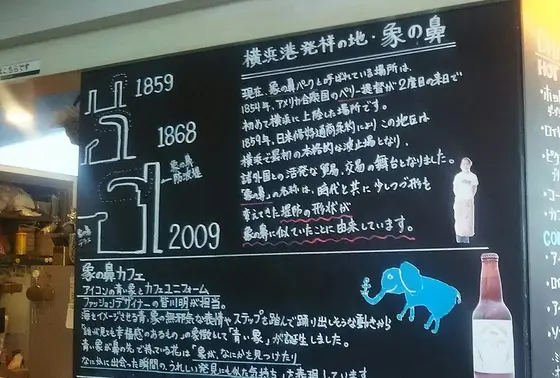 横浜港発祥の地・象の鼻
現在、象の鼻パークと呼ばれている場所は、
1854年、アメリカ合衆国のペリー提督が2度目の来日で
初めて横浜に上陸した場所です。
1859年、日米修好通商条約によりこの地区は
横浜で最初の本格的な波止場となり、
諸外国との活発な貿易、交易の舞台となりました。
「象の鼻」の名称は、時代と共に少しづつ形を
変えてきた堤防の形状が
象の鼻に似ていたことに由来しています。
1859
1868
象の鼻
防波堤
2009
象の鼻
テラス
象の鼻カフェ
アイコンの青い象とカフェユニフォーム
ファッションデザイナーの皆川明が担当。
海をイメージさせる青、象の無邪気な表情やステップを踏んで踊り出しそうな動きから
「誰が見ても幸福感のあるもの」の象徴として「青い象」が誕生しました。
青い象が鼻の先で持っている花は「象が、なにかを見つけたり
なにかに出会った瞬間の、うれしい発見にも似た気持ち」を表現しています
こちらです
HOT